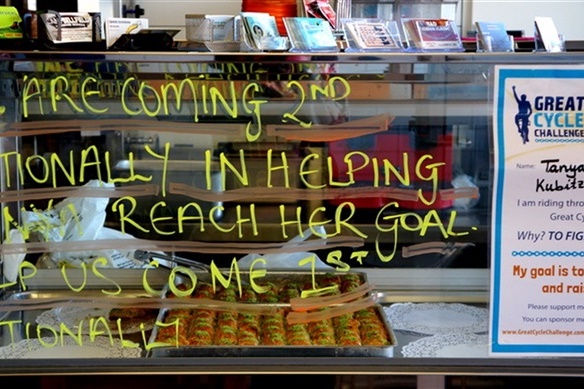 ARE COMING 2ND
TIONALLY IN HELPING
REACH HER GOAL.
LP US COME 1ST
TIONALLY
GREAT
CYCLE
CHALLENGE
Name: Tanya
Kubitz
I am riding thro
Great Cy
Why? TO FIG
My goal is to
and rai
Please support m
You can sponsor me
www.GreatCycleChallenge.com